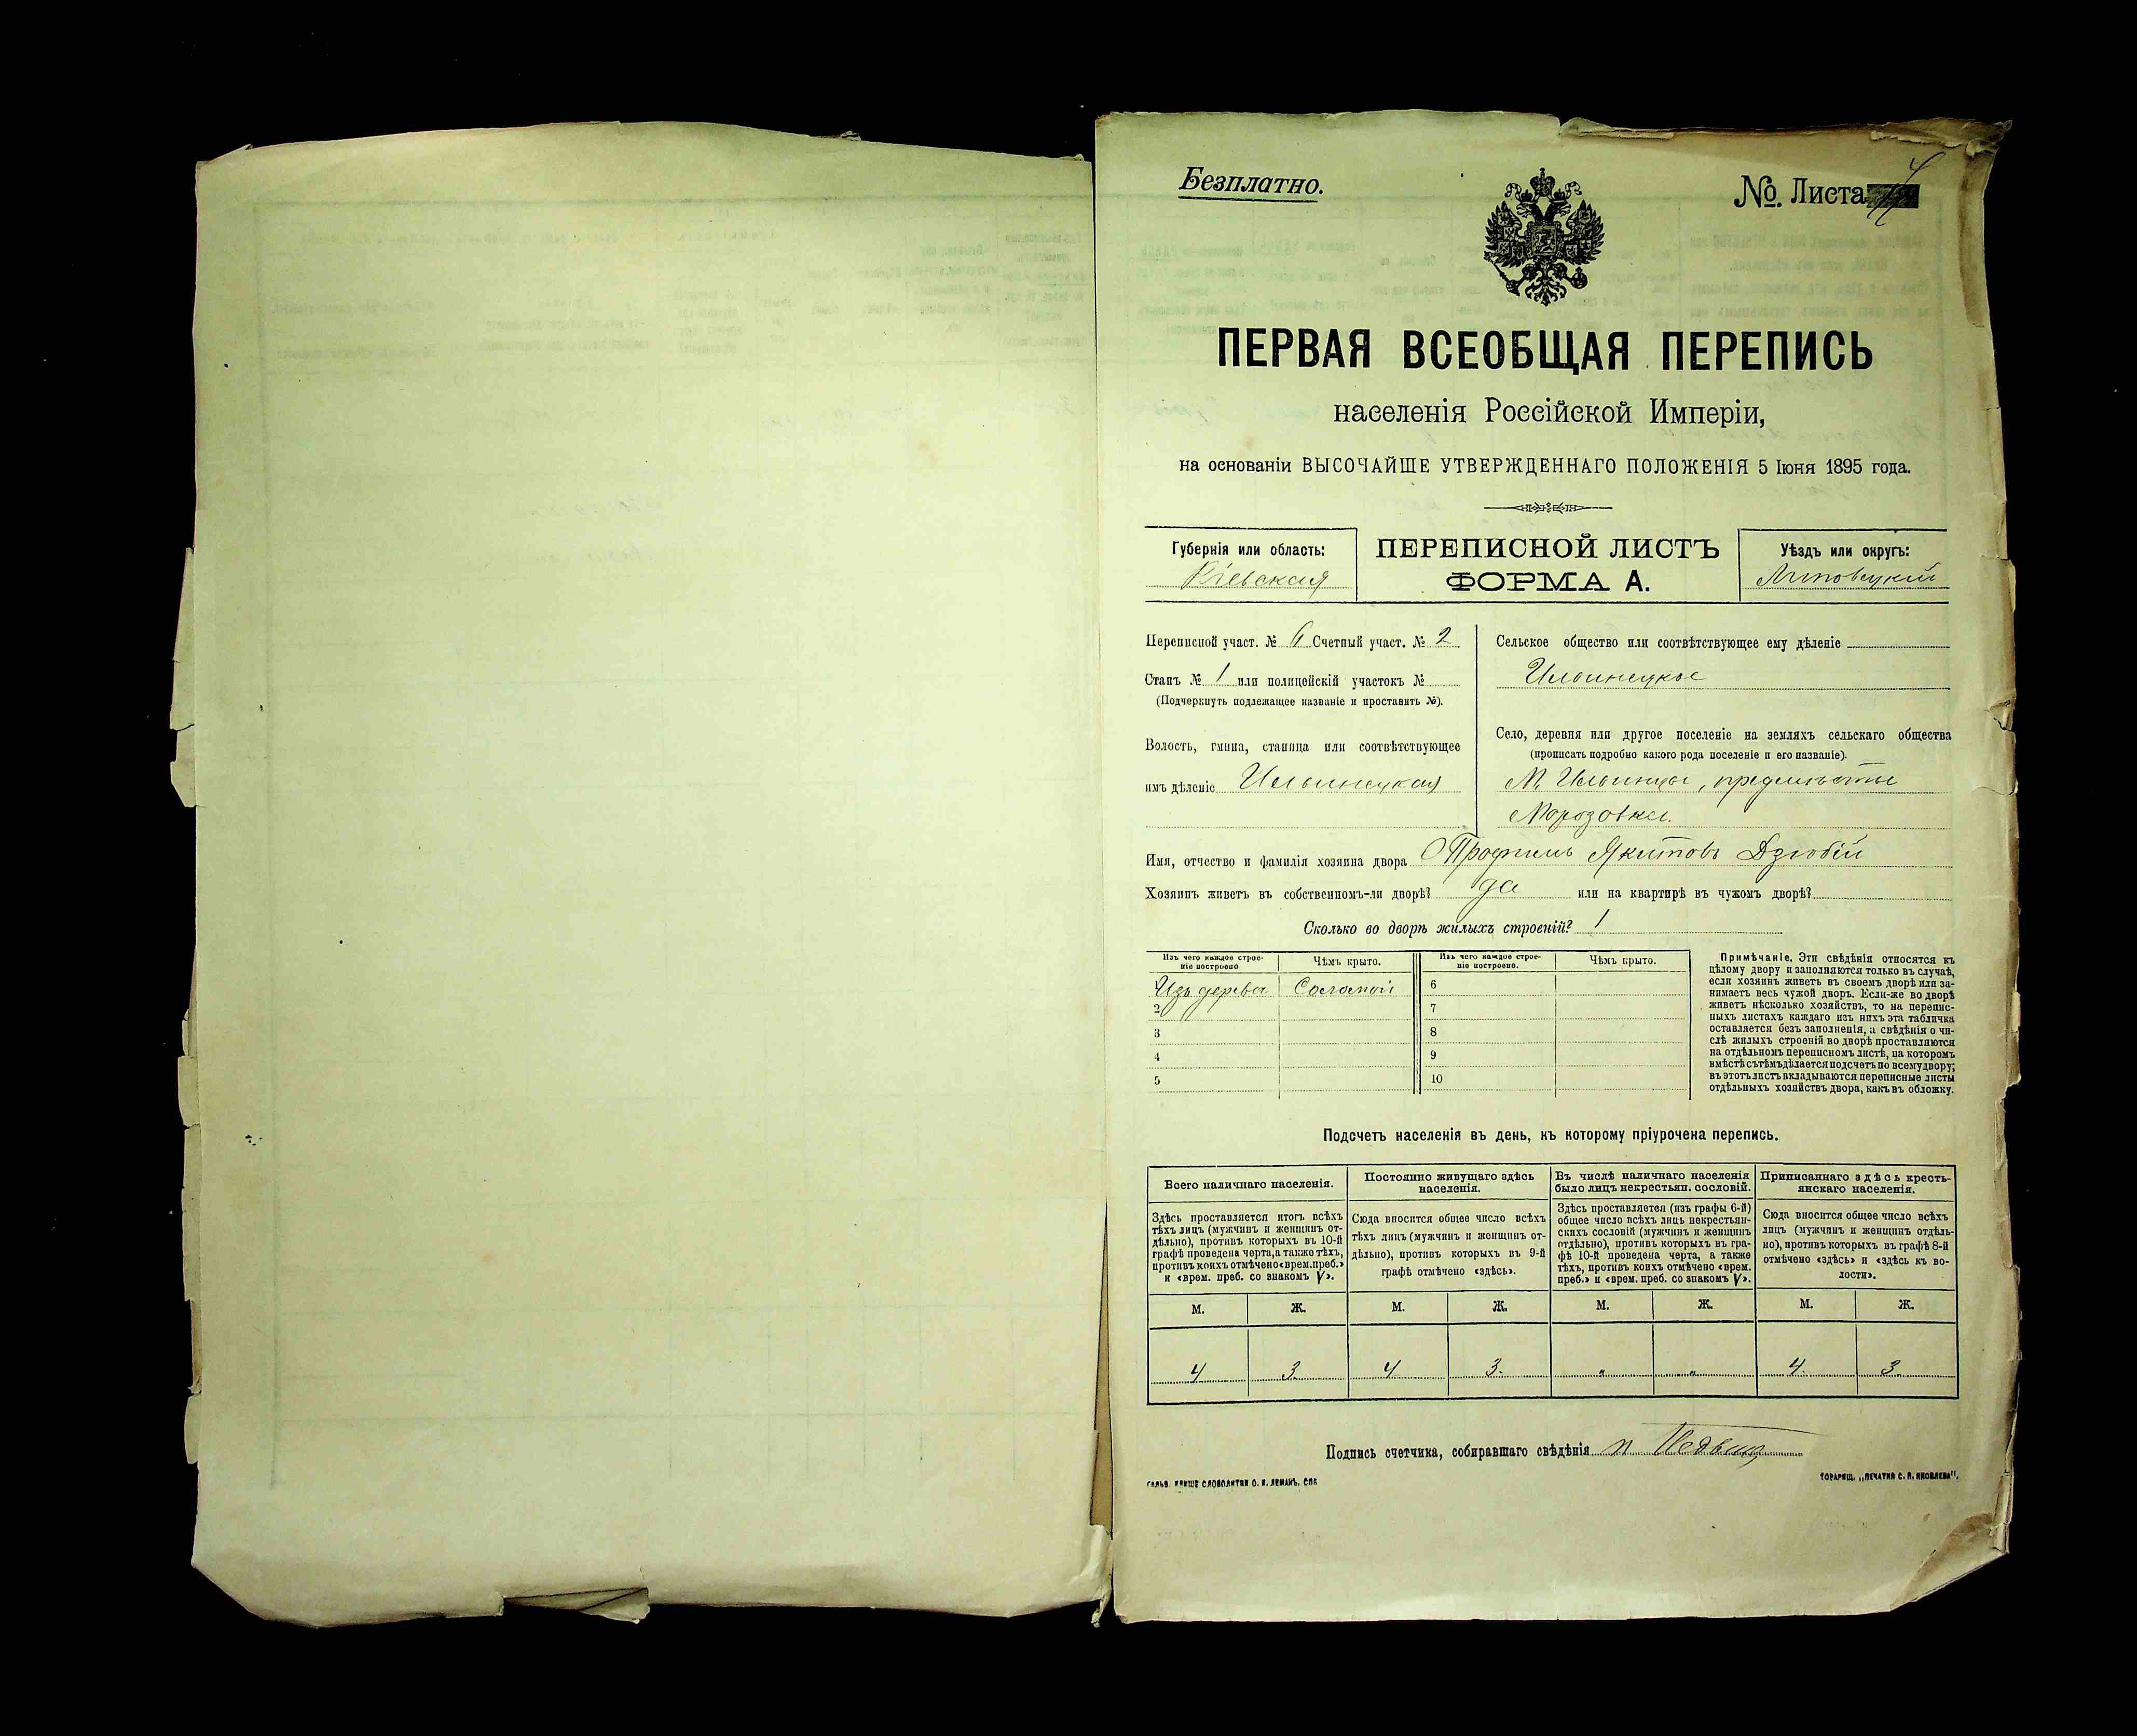 Безплатно.
№ Листа 4
ПЕРВАЯ ВСЕОБЩАЯ ПЕРЕПИСЬ
населенія Россійской Имперіи,
на основаніи ВЫСОЧАЙШЕ УТВЕРЖДЕННАГО ПОЛОЖЕНІЯ 5 Іюня 1895 года.
Губернія или область:
Кіевская
ПЕРЕПИСНОЙ ЛИСТЪ
ФОРМА А.
Уѣздъ или округъ:
Липовецкій
Переписной участ. № 6 Счетный участ. № 2
Станъ № 1 или полицейскій участокъ №
(Подчеркнуть подлежащее названіе и проставить №).
Волость, гмина, станица или соотвѣтствующее
имъ дѣленіе Ильинецкая
Сельское общество или соотвѣтствующее ему дѣленіе
Ильинецкое
Село, деревня или другое поселеніе на земляхъ сельскаго общества
(прописать подробно какого рода поселеніе и его названіе).
М. Ильинцы, предмѣстье
Морозовка.
Имя, отчество и фамилія хозяина двора Якимовъ
Хозяинъ живетъ въ собственномъ-ли дворѣ? да или на квартирѣ въ чужомъ дворѣ?
Сколько во дворѣ жилыхъ строеній? 1
Изъ чего каждое строе-
ніе построено
Чѣмъ крыто.
Изъ чего каждое строе-
ніе построено.
Чѣмъ крыто.
Изъ дерева Соломой 6
2 7
3 8
4 9
5 10
Примѣчаніе. Эти свѣдѣнія относятся къ
цѣлому двору и заполняются только въ случаѣ,
если хозяинъ живетъ въ своемъ дворѣ или за-
нимаетъ весь чужой дворъ. Если-же во дворѣ
живетъ нѣсколько хозяйствъ, то на перепис-
ныхъ листахъ каждаго изъ нихъ эта табличка
оставляется безъ заполненія, а свѣдѣнія о чи-
слѣ жилыхъ строеній во дворѣ проставляются
на отдѣльномъ переписномъ листѣ, на которомъ
вмѣстѣ съ тѣмъ дѣлается подсчетъ по всему двору;
въ этотъ листъ вкладываются переписные листы
отдѣльныхъ хозяйствъ двора, какъ въ обложку.
Подсчетъ населенія въ день, къ которому пріурочена перепись.
Всего наличнаго населенія.
Здѣсь проставляется итогъ всѣхъ
тѣхъ лицъ (мужчинъ и женщинъ от-
дѣльно), противъ которыхъ въ 10-й
графѣ проведена черта, а также тѣхъ,
противъ коихъ отмѣчено «врем. преб.»
и «врем. преб. со знакомъ V».
Постоянно живущаго здѣсь
населенія.
Сюда вносится общее число всѣхъ
тѣхъ лицъ (мужчинъ и женщинъ от-
дѣльно), противъ которыхъ въ 9-й
графѣ отмѣчено «здѣсь».
Въ числѣ наличнаго населенія
было лицъ некрестьян. сословій.
Здѣсь проставляется (изъ графы 6-й)
общее число всѣхъ лицъ некрестьян-
скихъ сословій (мужчинъ и женщинъ
отдѣльно), противъ которыхъ въ гра-
фѣ 10-й проведена черта, а также
тѣхъ, противъ коихъ отмѣчено «врем.
преб.» и «врем. преб. со знакомъ V».
Приписаннаго здѣсь кресть-
янскаго населенія.
Сюда вносится общее число всѣхъ
лицъ (мужчинъ и женщинъ отдѣль-
но), противъ которыхъ въ графѣ 8-й
отмѣчено «здѣсь» и «здѣсь къ во-
лости».
М. Ж. М. Ж. М. Ж. М. Ж.
4 3 4 3 " " 4 3
Подпись счетчика, собиравшаго свѣдѣнія
ГАЛЬВ. КЛИШЕ СЛОВОЛИТНИ О. И. ЛЕМАНЪ, СПБ
ТОВАРИЩ. „ПЕЧАТНЯ С. П. ЯКОВЛЕВА".